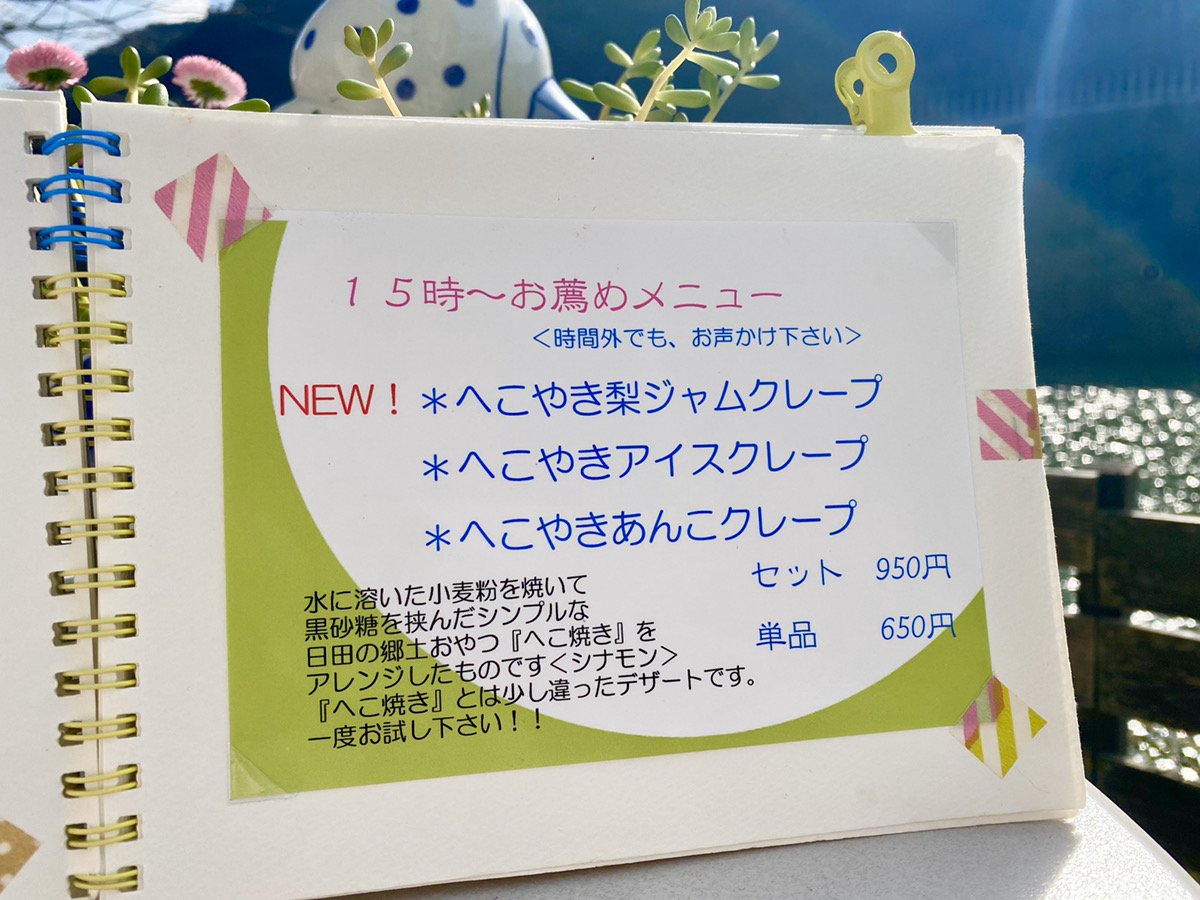 １５時～お薦めメニュー
＜時間外でも、お声かけ下さい＞
NEW！＊へこやき梨ジャムクレープ
＊へこやきアイスクレープ
＊へこやきあんこクレープ
セット 950円
単品 650円
水に溶いた小麦粉を焼いて
黒砂糖を挟んだシンプルな
日田の郷土おやつ『へこ焼き』を
アレンジしたものです＜シナモン＞
『へこ焼き』とは少し違ったデザートです。
一度お試し下さい！！